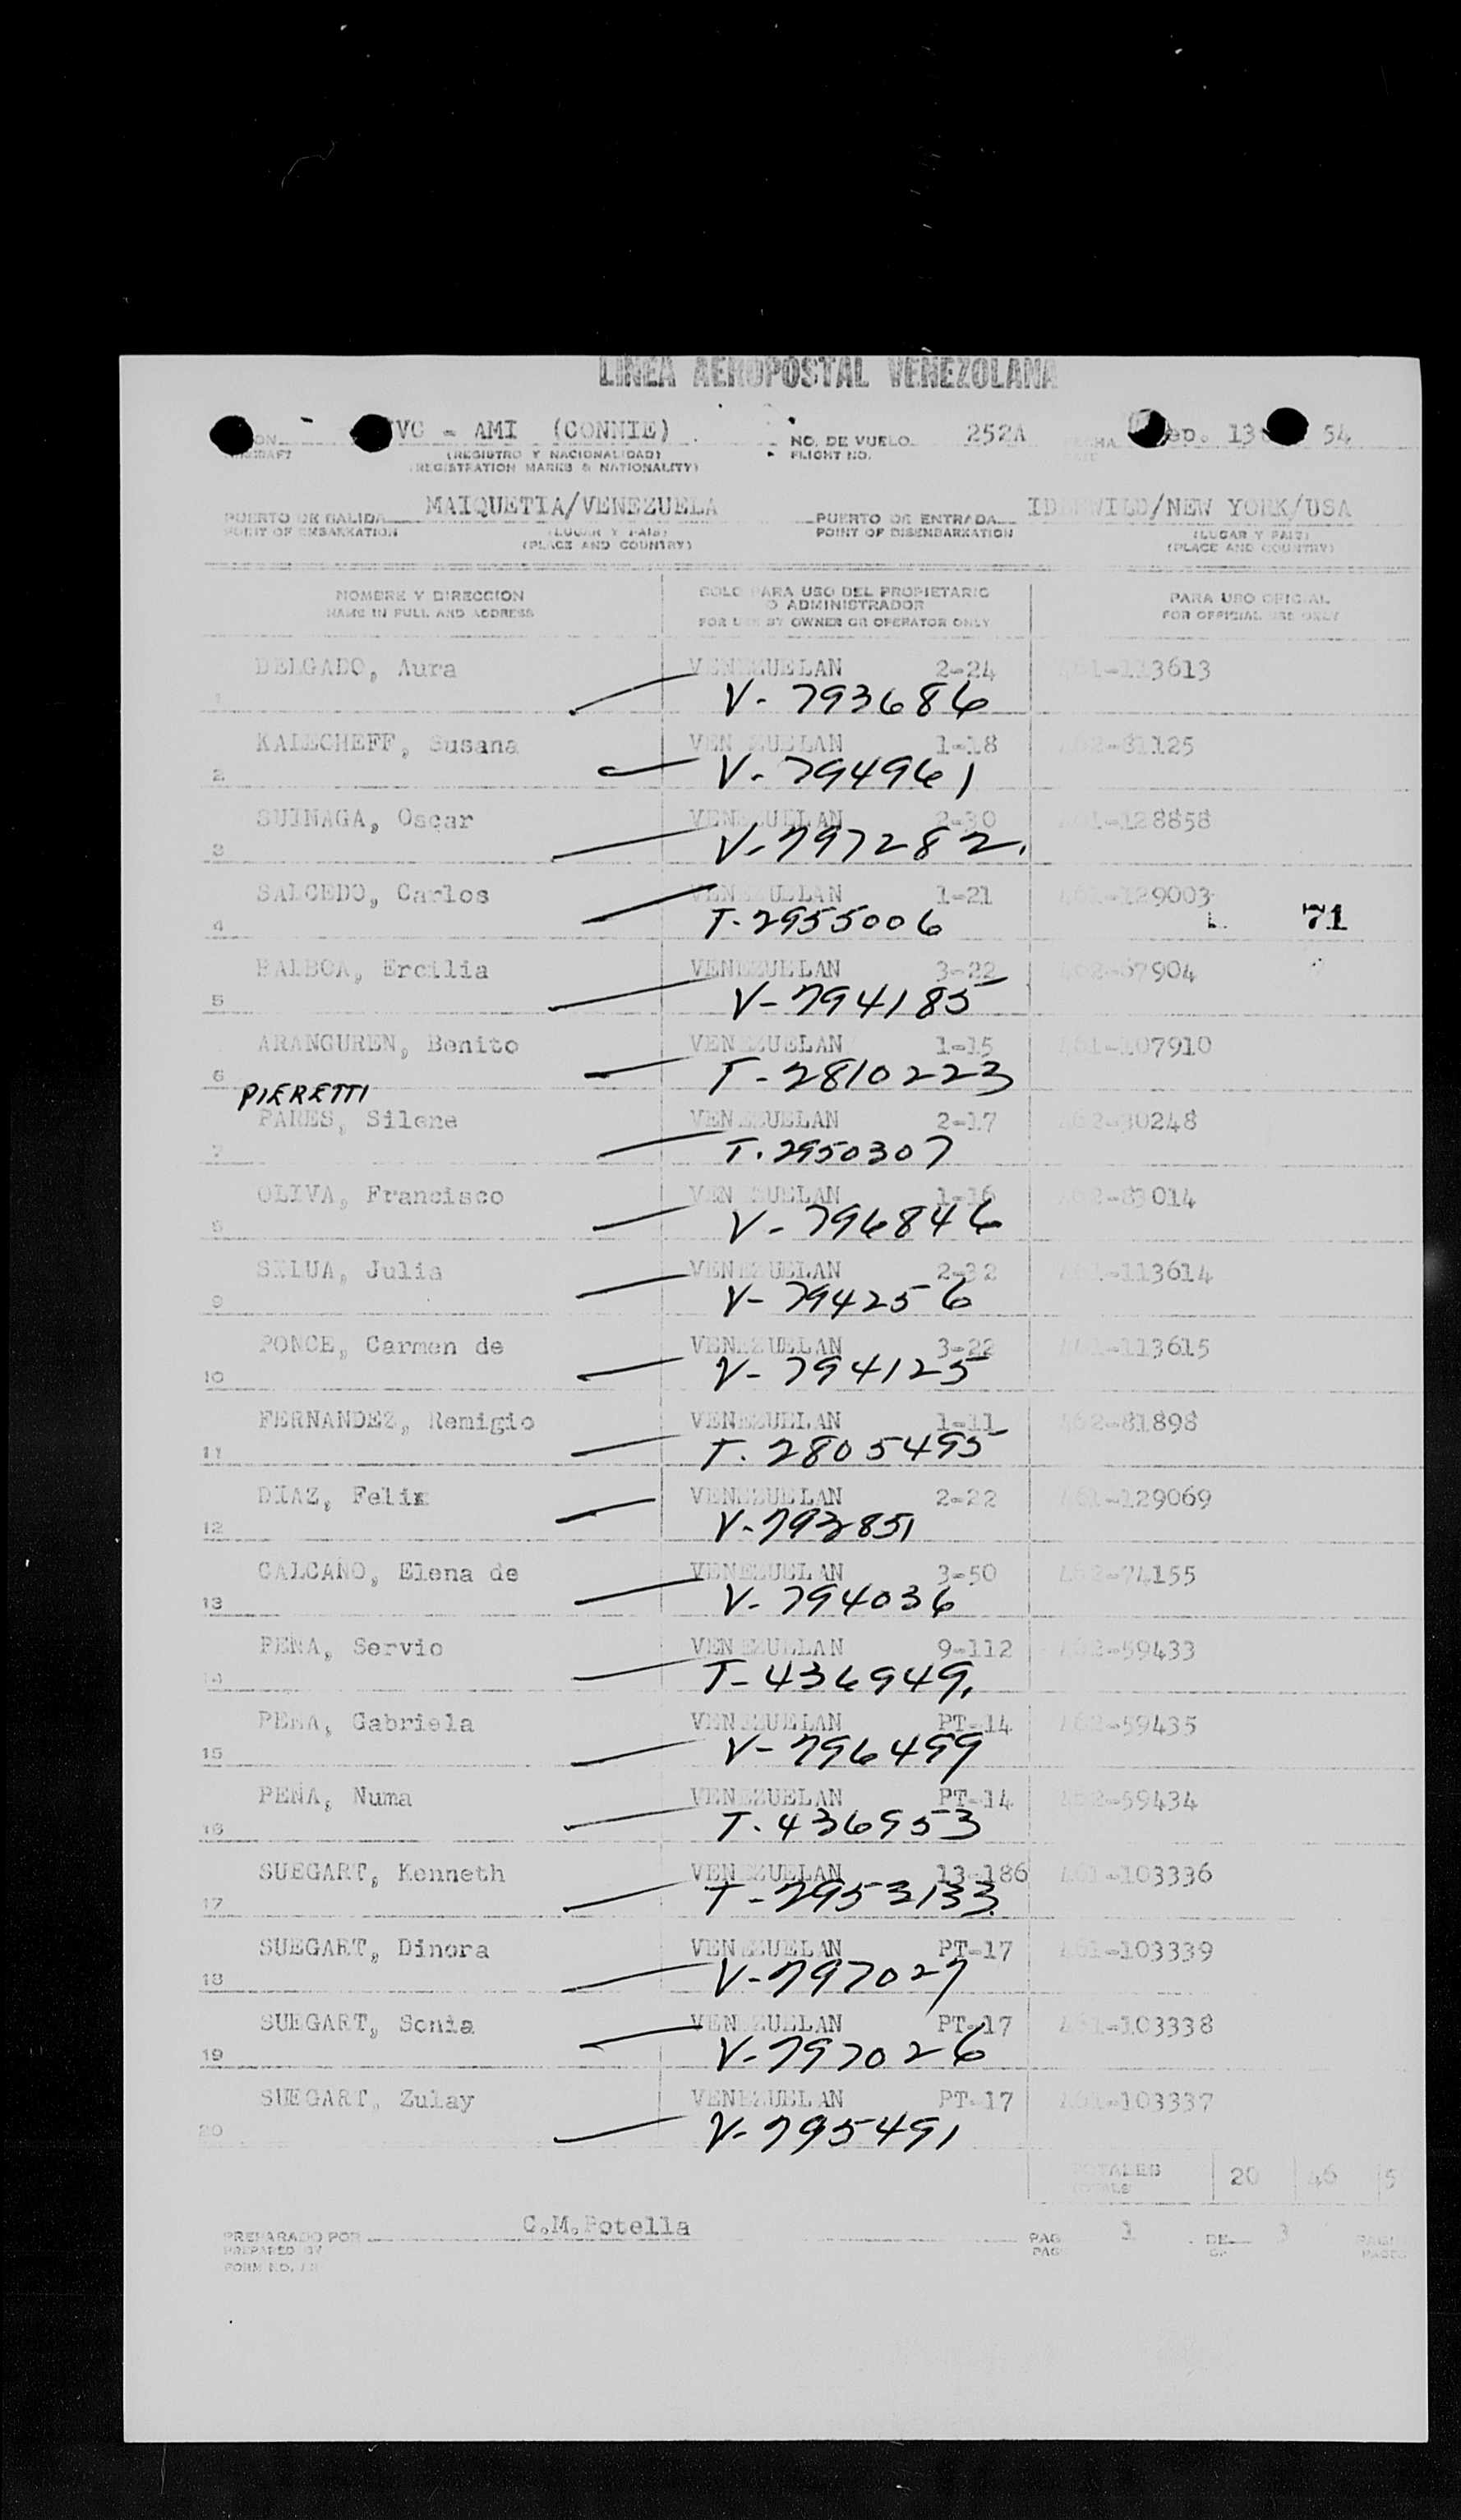 LINEA AEROPOSTAL VENEZOLANA
YVC - AMI (CONNIE) NO. DE VUELO 252A Sep. 13 54
(REGISTRO Y NACIONALIDAD) FLIGHT NO.
(REGISTRATION MARKS & NATIONALITY)
MAIQUETIA/VENEZUELA IDLEWILD/NEW YORK/USA
PUERTO DE SALIDA (LUGAR Y PAIS) PUERTO DE ENTRADA (LUGAR Y PAIS)
POINT OF EMBARKATION (PLACE AND COUNTRY) POINT OF DISEMBARKATION (PLACE AND COUNTRY)
NOMBRE Y DIRECCION SOLO PARA USO DEL PROPIETARIO O ADMINISTRADOR PARA USO OFICIAL
NAME IN FULL AND ADDRESS FOR USE BY OWNER OR OPERATOR ONLY FOR OFFICIAL USE ONLY
DELGADO, Aura VENEZUELAN 2-24 461-113613
1 V- 793686
KALECHEFF, Susana VENEZUELAN 1-18 462-81125
2 V- 794961
SUINAGA, Oscar VENEZUELAN 2-30 461-128858
3 V-797282.
SALCEDO, Carlos VENEZUELAN 1-21 461-129003
4 T-2955006 71
BALBOA, Ercilia VENEZUELAN 3-22 462-67904
5 V-794185
ARANGUREN, Benito VENEZUELAN 1-15 461-107910
6 T-2810223
PIERETTI
PARES, Silene VENEZUELAN 2-17 462-80248
7 T.2950307
OLIVA, Francisco VENEZUELAN 1-16 462-83014
8 V-796846
SELUA, Julia VENEZUELAN 2-32 461-113614
9 V-794256
PONCE, Carmen de VENEZUELAN 3-22 461-113615
10 V-794125
FERNANDEZ, Remigio VENEZUELAN 1-11 462-81898
11 T. 2805495
DIAZ, Felix VENEZUELAN 2-22 461-129069
12 V-792851
CALCAÑO, Elena de VENEZUELAN 3-50 462-74155
13 V-794036
PEÑA, Servio VENEZUELAN 9-112 462-59433
14 T-436949.
PEÑA, Gabriela VENEZUELAN PT-14 462-59435
15 V-796499
PEÑA, Numa VENEZUELAN PT-14 462-59434
16 T.436953
SUEGART, Kenneth VENEZUELAN 13-186 461-103336
17 T-2953133
SUEGART, Dinora VENEZUELAN PT-17 461-103339
18 V-797027
SUEGART, Sonia VENEZUELAN PT-17 461-103338
19 V-797026
SUEGART, Zulay VENEZUELAN PT-17 461-103337
20 V-795491
TOTALES 20 46 5
TOTALS
PREPARADO POR C.M.Potella PAG 1 DE 3
PREPARED BY PAG OF
FORM NO.